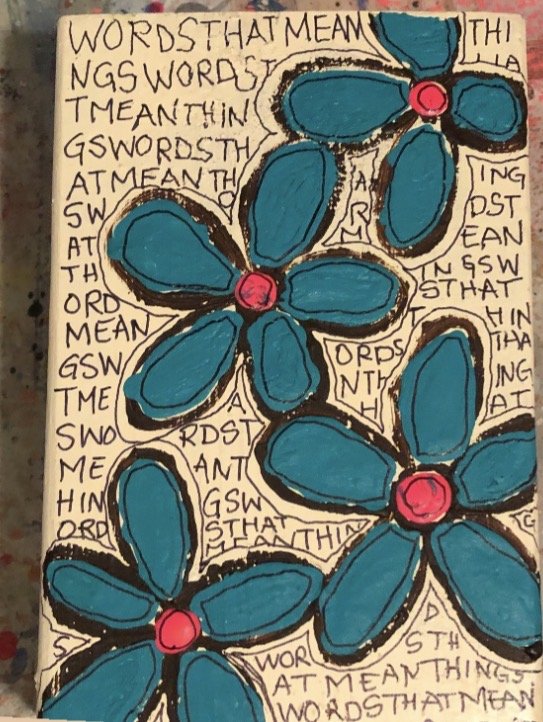 WORDSTHATMEAN THI
NGSWORDST
TMEANTHIN
GSWORDSTH
ATMEANTH ING
SW DST
AT EAN
TH INGSW
ORD STHAT
MEAN HIN
GSW ORDS THA
TME NTH ING
SWO A H AT
ME RDST
HIN ANT
ORD GSW
STHAT
MEANTHIN
D
S STH
WOR
ATMEANTHINGS
WORDSTHATMEAN